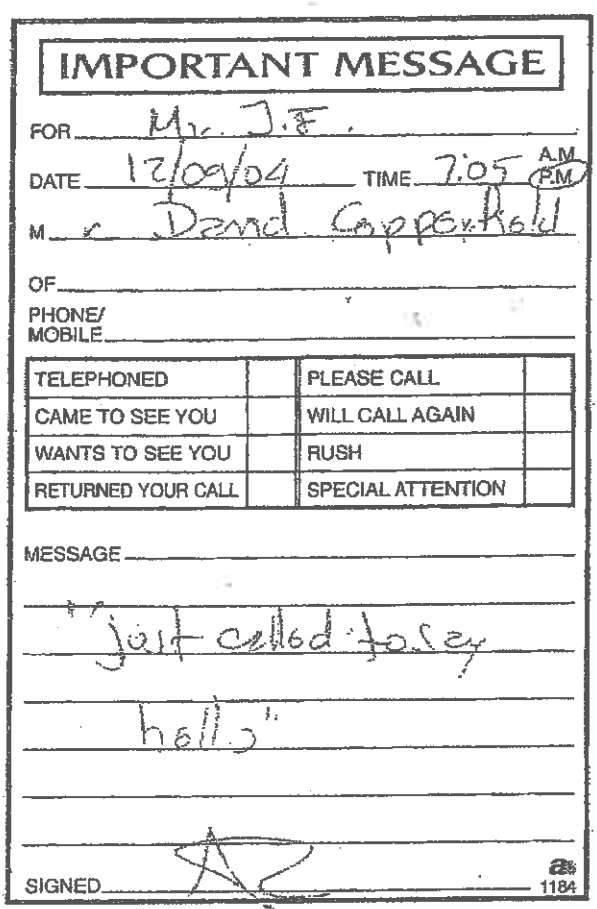 IMPORTANT MESSAGE
FOR Mr. J.E.
DATE 12/09/04 TIME 7:05 A.M P.M
M r David Copperfield
OF
PHONE/
MOBILE
TELEPHONED PLEASE CALL
CAME TO SEE YOU WILL CALL AGAIN
WANTS TO SEE YOU RUSH
RETURNED YOUR CALL SPECIAL ATTENTION
MESSAGE
"just called to say
hello"
SIGNED
1184